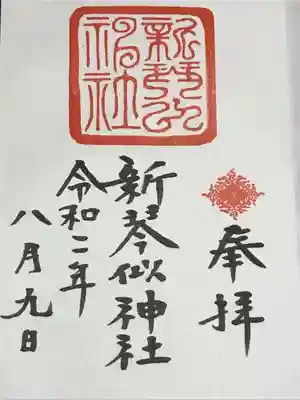 奉拝
新琴似神社
令和二年
八月九日
新琴似神社